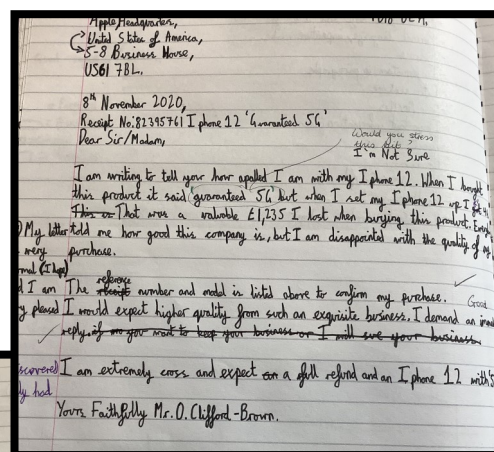 Apple Headquarters,
United States of America,
5-8 Business House,
US61 7BL.
8th November 2020,
Receipt No:82395761 I phone 12 'Guaranteed 5G'
Dear Sir/Madam,
Would you stress
this bit?
I'm Not Sure
I am writing to tell your how apalled I am with my I phone 12. When I bought
this product it said 'guaranteed 5G' but when I set my I phone 12 up I got 4G
This is That was a valuble £1,235 I lost when buying this product. Every
My letter told me how good this company is, but I am disappointed with the quality of my
very purchase.
mal (I hope)
d I am The receipt reference number and model is listed above to confirm my purchase.
Good
y pleased I would expect higher quality from such an exquisite business. I demand an
reply, if you want to keep your business or I will sue your business.
scovered I am extremely cross and expect a full refund and an I phone 12 with 5
ly had
Yours Faithfully Mr.O.Clifford-Brown.